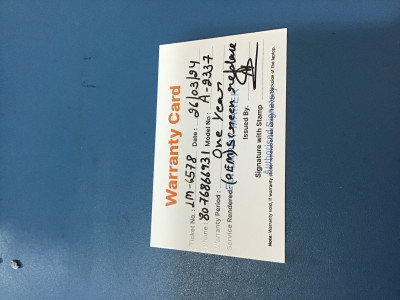 Warranty Card
Ticket No.: LM-6578 Date: 26/03/24
Phone: 8076866931 Model No: A-2337
Warranty Period: One Year
Service Rendered: (OEM) Screen replace
Issued By.
Signature with Stamp
Authorised Signatory
Note: Warranty void, if warranty